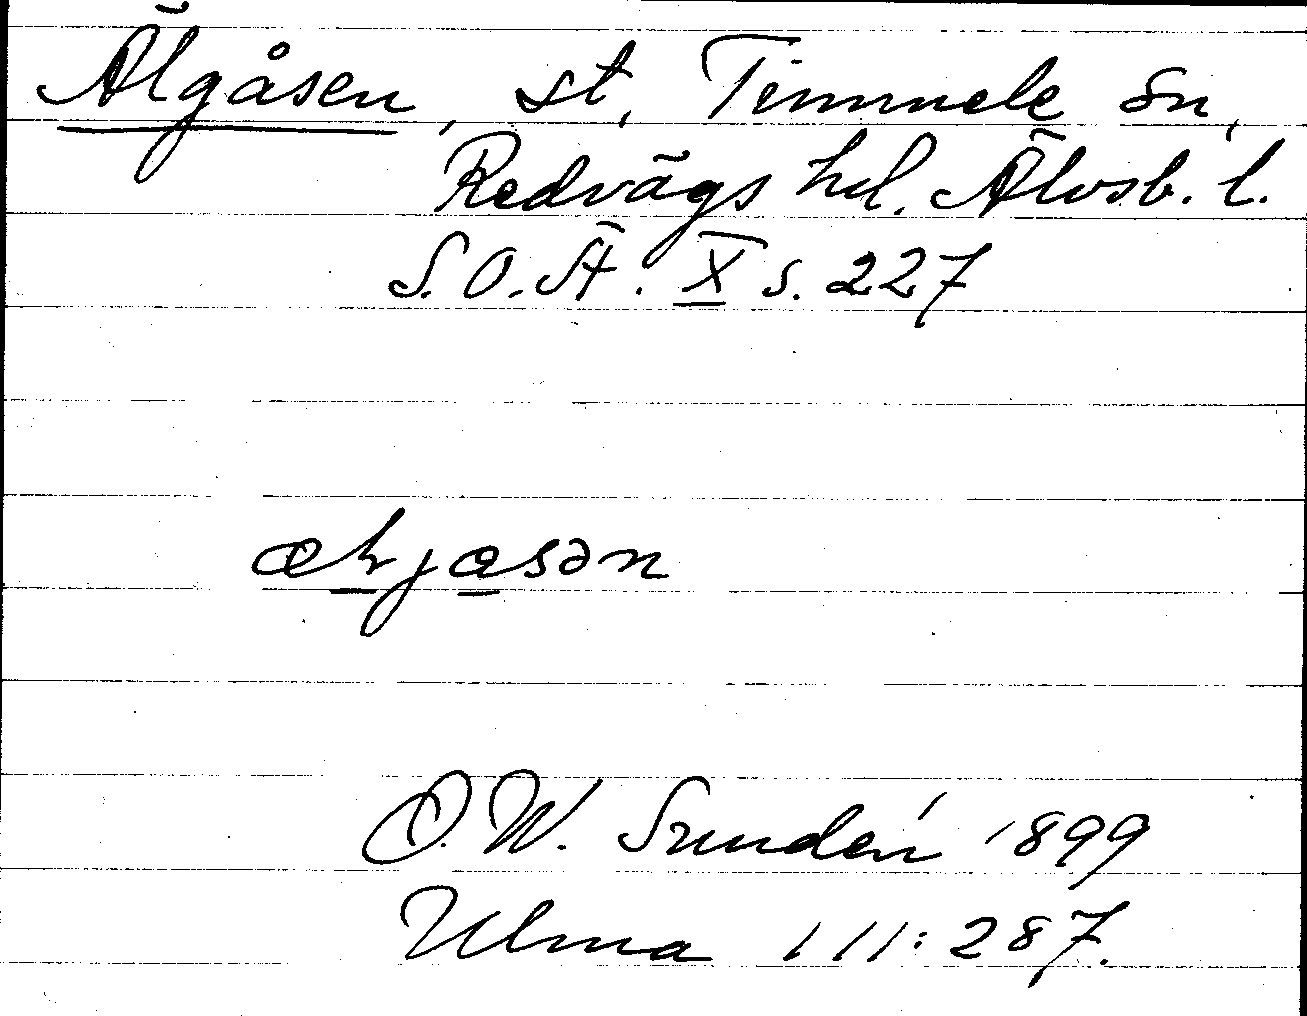 Älgåsen, st, Timmele sn,
Redvägs hd. Älvsb. l.
S.O.Ä. X s. 227
æljasən
D.W. Sundén 1899
Ulma 111:287.